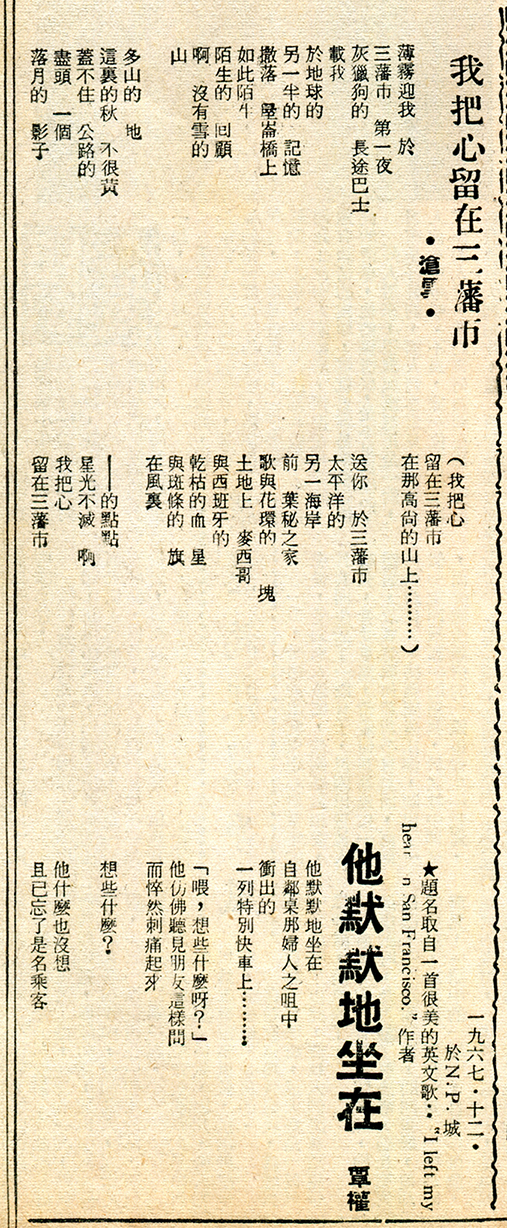 我把心留在三藩市
•滄雪•
薄霧迎我 於
三藩市 第一夜
灰獵狗的 長途巴士
載我
於地球的
另一半的 記憶
撒落 墾崙橋上
如此陌生
陌生的 回顧
啊 沒有雪的
山
多山的 地
這裏的秋 不很黃
蓋不住 公路的
盡頭 一個
落月的 影子
(我把心
留在三藩市
在那高尙的山上………)
送你 於三藩市
太平洋的
另一海岸
前 葉秘之家
歌與花環的 塊
土地上 麥西哥
與西班牙的
乾枯的血 星
與斑條的 旗
在風裏
——的點點
星光不滅 啊
我把心
留在三藩市
一九六七•十二•
於N.P.城
★題名取自一首很美的英文歌:"I left my
heart in San Francisco."作者
他默默地坐在
覃權
他默默地坐在
自鄰桌那婦人之咀中
衝出的
一列特別快車上………
「喂,想些什麼呀?」
他仿佛聽見朋友這樣問
而悴然刺痛起來
想些什麼?
他什麼也沒想
且已忘了是名乘客